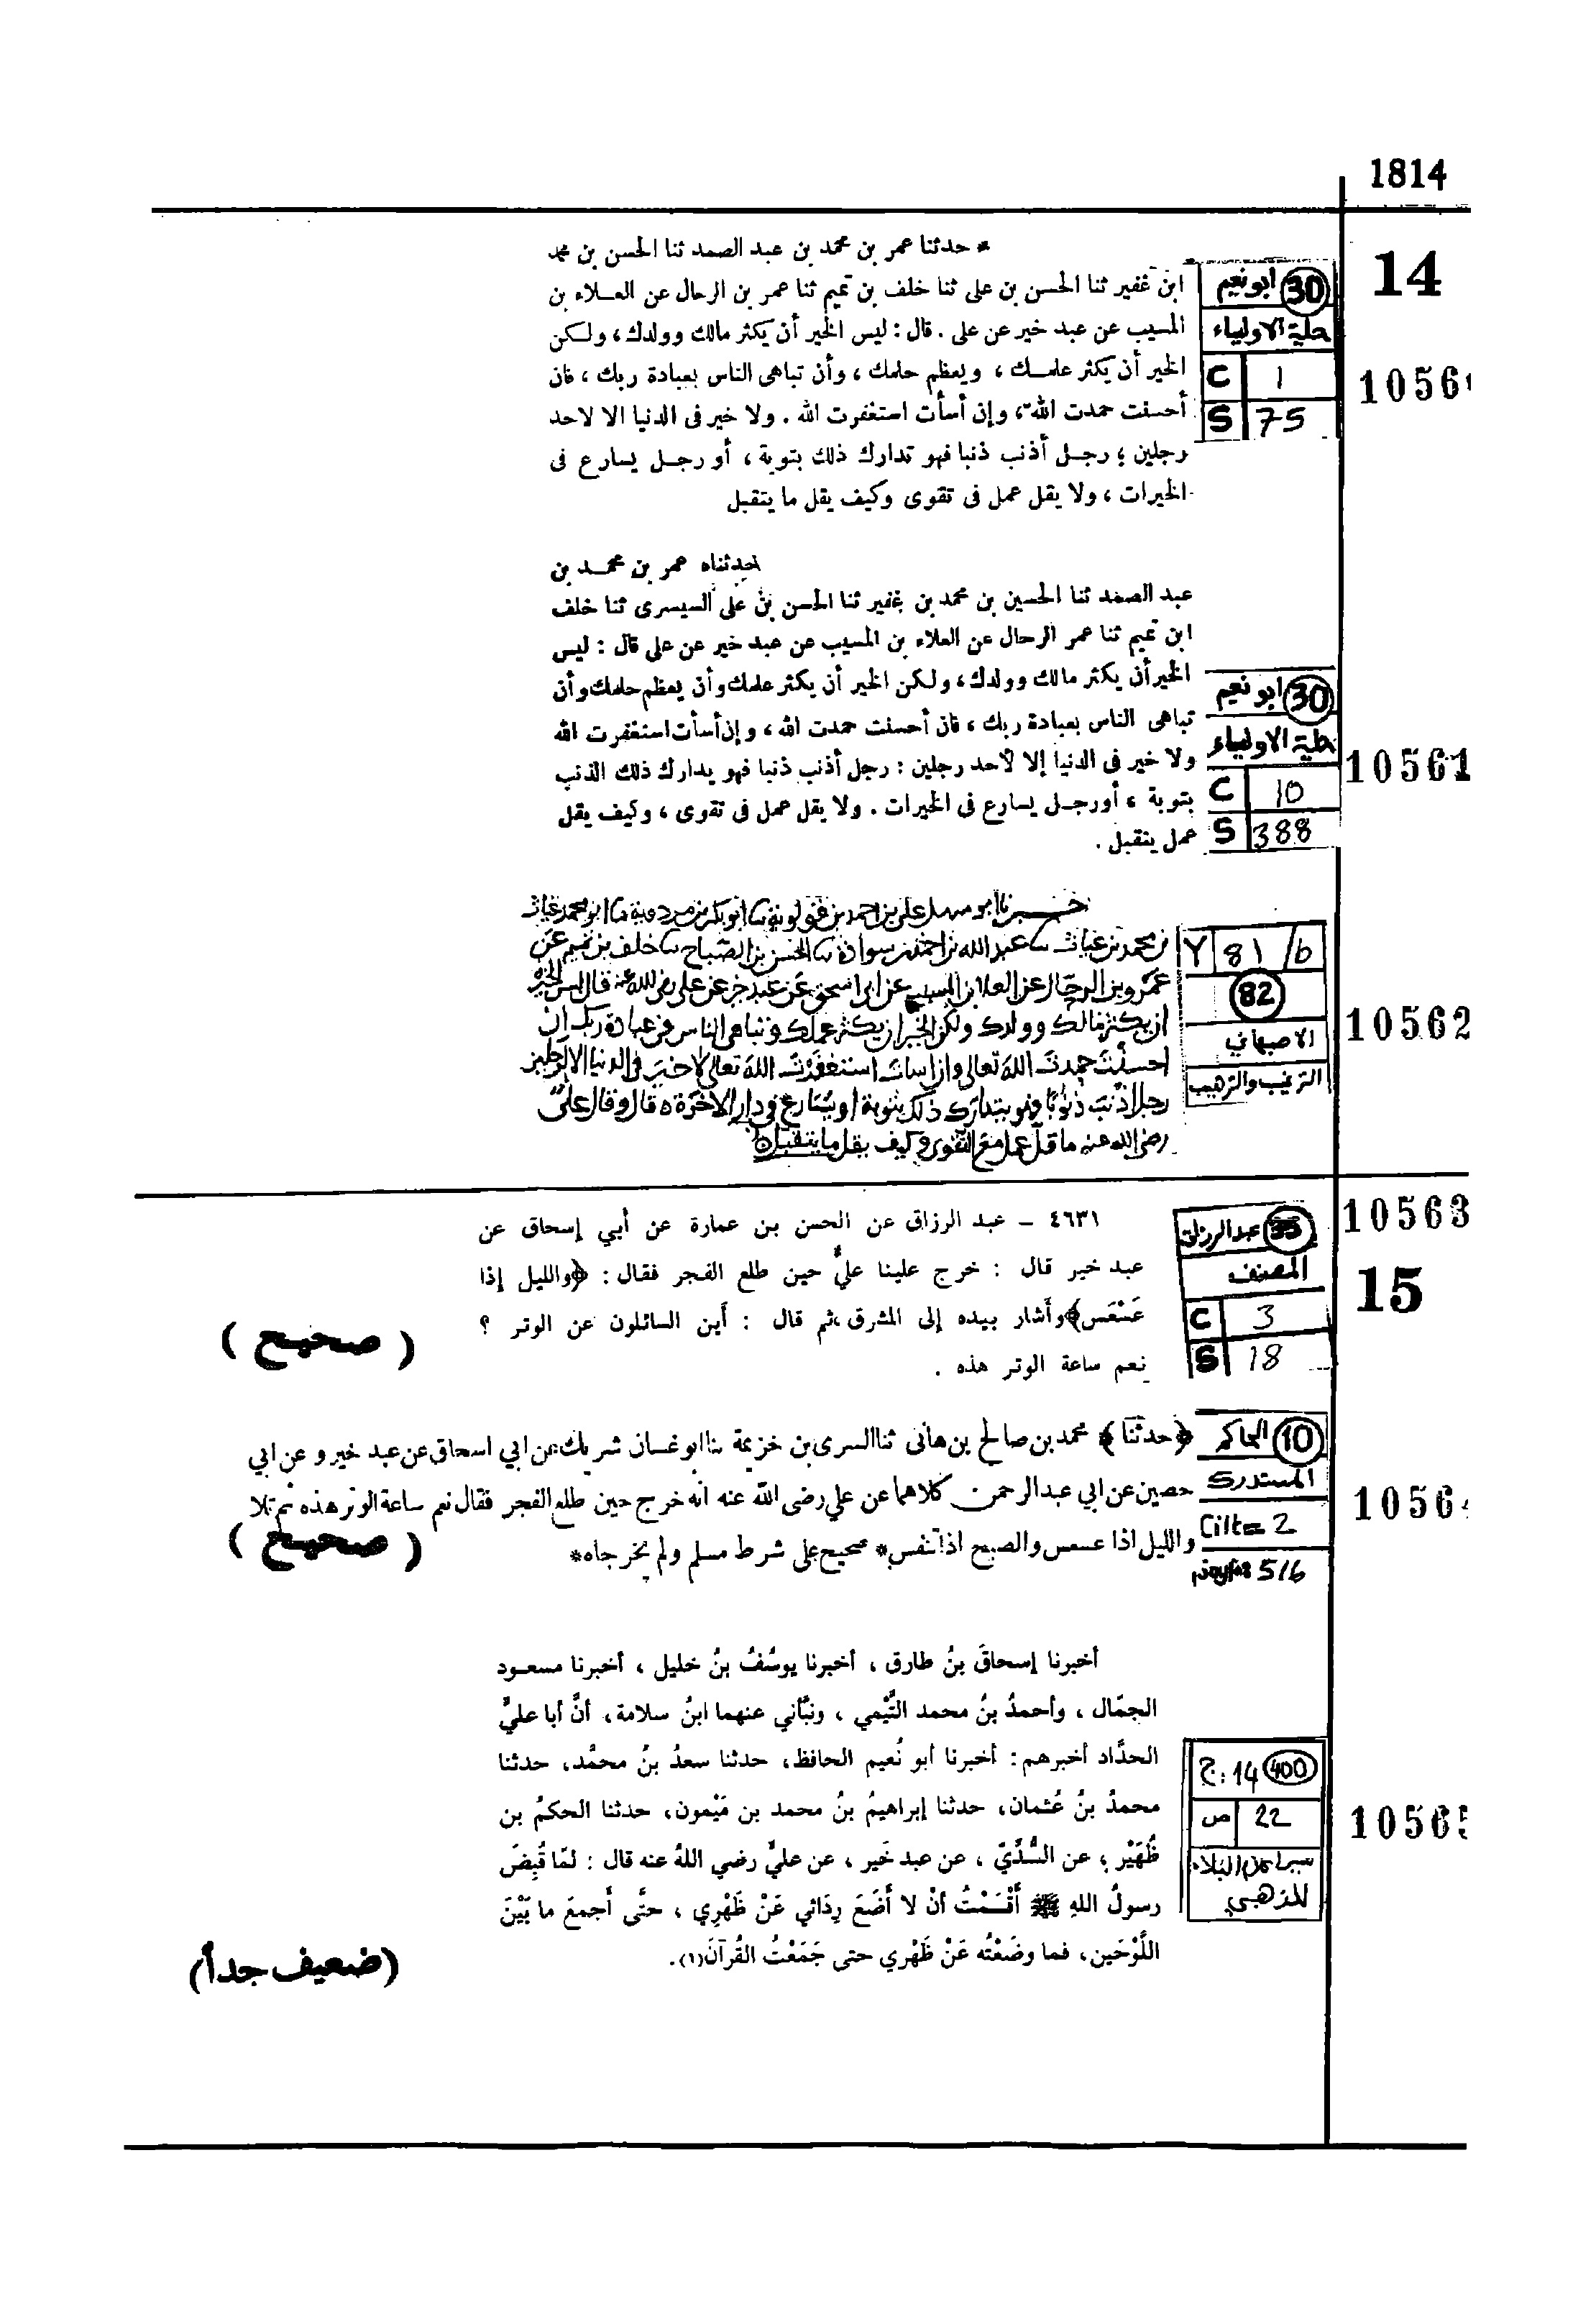 1814
14
* حدثنا عمر بن محمد بن عبد الصمد ثنا الحسن بن محمد
ابن غفير ثنا الحسن بن على ثنا خلف بن تميم ثنا عمر بن الرحال عن العلاء بن
المسيب عن عبد خير عن على . قال : ليس الخير أن يكثر مالك وولدك ، ولكن
الخير أن يكثر علمك ، ويعظم حلمك ، وأن تباهى الناس بعبادة ربك ، فان
أحسنت حمدت الله ، وإن أسأت استغفرت الله . ولا خير فى الدنيا الا لاحد
رجلين ؛ رجل أذنب ذنبا فهو تدارك ذلك بتوبة ، أو رجل يسارع فى
الخيرات ، ولا يقل عمل فى تقوى وكيف يقل ما يتقبل
30 ابو نعيم
حلية الاولياء
C 1
S 75
1056
حدثناه عمر بن محمد بن
عبد الصمد ثنا الحسين بن محمد بن غفير ثنا الحسن بن على السيسرى ثنا خلف
ابن تميم ثنا عمر الرحال عن العلاء بن المسيب عن عبد خير عن على قال : ليس
الخير أن يكثر مالك وولدك ، ولكن الخير أن يكثر علمك وأن يعظم حلمك وأن
تباهى الناس بعبادة ربك ، فان أحسنت حمدت الله ، وإن أسأت استغفرت الله
ولا خير فى الدنيا إلا لأحد رجلين : رجل أذنب ذنبا فهو يدارك ذلك الذنب
بتوبة ، أو رجل يسارع فى الخيرات . ولا يقل عمل فى تقوى ، وكيف يقل
عمل يتقبل .
30 ابو نعيم
حلية الاولياء
C 10
S 388
10561
ابو سهل على بن احمد بن ابو بكر بن مردوية ابو محمد غياث
بن محمد بن غياث عبد الله بن احمد بن سوادة الحسن بن الصباح خلف بن تميم عن
عمرو بن الرحال عن العلا بن المسيب عن ابى اسحق عن عبد خير عن على رضى الله عنه قال ليس الخير
ان يكثر مالك وولدك ولكن الخير ان يكثر عملك وتباهى الناس فى عبادة ربك ان
احسنت حمدت الله تعالى وان اسات استغفرت الله تعالى لا خير فى الدنيا الا لرجلين
رجل اذنب ذنوبا فهو يتدارك ذلك بتوبة او يسارع فى دار الاخرة قال وقال على
رضى الله عنه ما قل عمل مع التقوى وكيف يقل ما يتقبل
Y 81 / b
82
الاصبهاني
الترغيب والترهيب
10562
10563
15
٤٦٣١ – عبد الرزاق عن الحسن بن عمارة عن أبي إسحاق عن
عبد خير قال : خرج علينا عليٌّ حين طلع الفجر فقال : ﴿والليل إذا
عَسْعَس﴾ وأَشار بيده إلى المشرق ، ثم قال : أين السائلون عن الوتر ؟
نعم ساعة الوتر هذه .
( صحيح )
35 عبد الرزاق
المصنف
C 3
S 18
﴿حدثنا﴾ محمد بن صالح بن هانى ثنا السرى بن خزيمة ثنا ابو غسان شريك عن ابي اسحاق عن عبد خير و عن ابي
حصين عن ابي عبد الرحمن كلاهما عن علي رضى الله عنه انه خرج حين طلع الفجر فقال نعم ساعة الوتر هذه ثم تلا
والليل اذا عسعس والصبح اذا تنفس * صحيح على شرط مسلم ولم يخرجاه *
( صحيح )
10 الحاكم
المستدرك
Cilt= 2
sayfa 516
1056
أخبرنا إسحاقُ بنُ طارق ، أخبرنا يوسُفُ بنُ خليل ، أخبرنا مسعود
الجمّال ، وأحمدُ بنُ محمد التَّيْمي ، ونبَّأني عنهما ابنُ سلامة ، أنَّ أبا عليٍّ
الحدَّاد أخبرهم : أخبرنا أبو نُعيم الحافظ ، حدثنا سعدُ بنُ محمَّد ، حدثنا
محمدُ بنُ عُثمان ، حدثنا إبراهيمُ بنُ محمد بن مَيْمون ، حدثنا الحكمُ بن
ظُهَيْر ، عن السُّدِّيّ ، عن عبد خَير ، عن عليٍّ رضي اللهُ عنه قال : لمّا قُبِضَ
رسولُ اللهِ ﷺ أَقْسَمْتُ أنْ لا أَضَعَ رِدَائي عَنْ ظَهْرِي ، حتَّى أَجمعَ ما بَيْنَ
اللَّوْحَين ، فما وضَعْتُه عَنْ ظَهْري حتى جَمَعْتُ القُرآنَ(١) .
(ضعيف جداً)
400 ج: 14
ص 22
سير اعلام النبلاء
للذهبي
1056